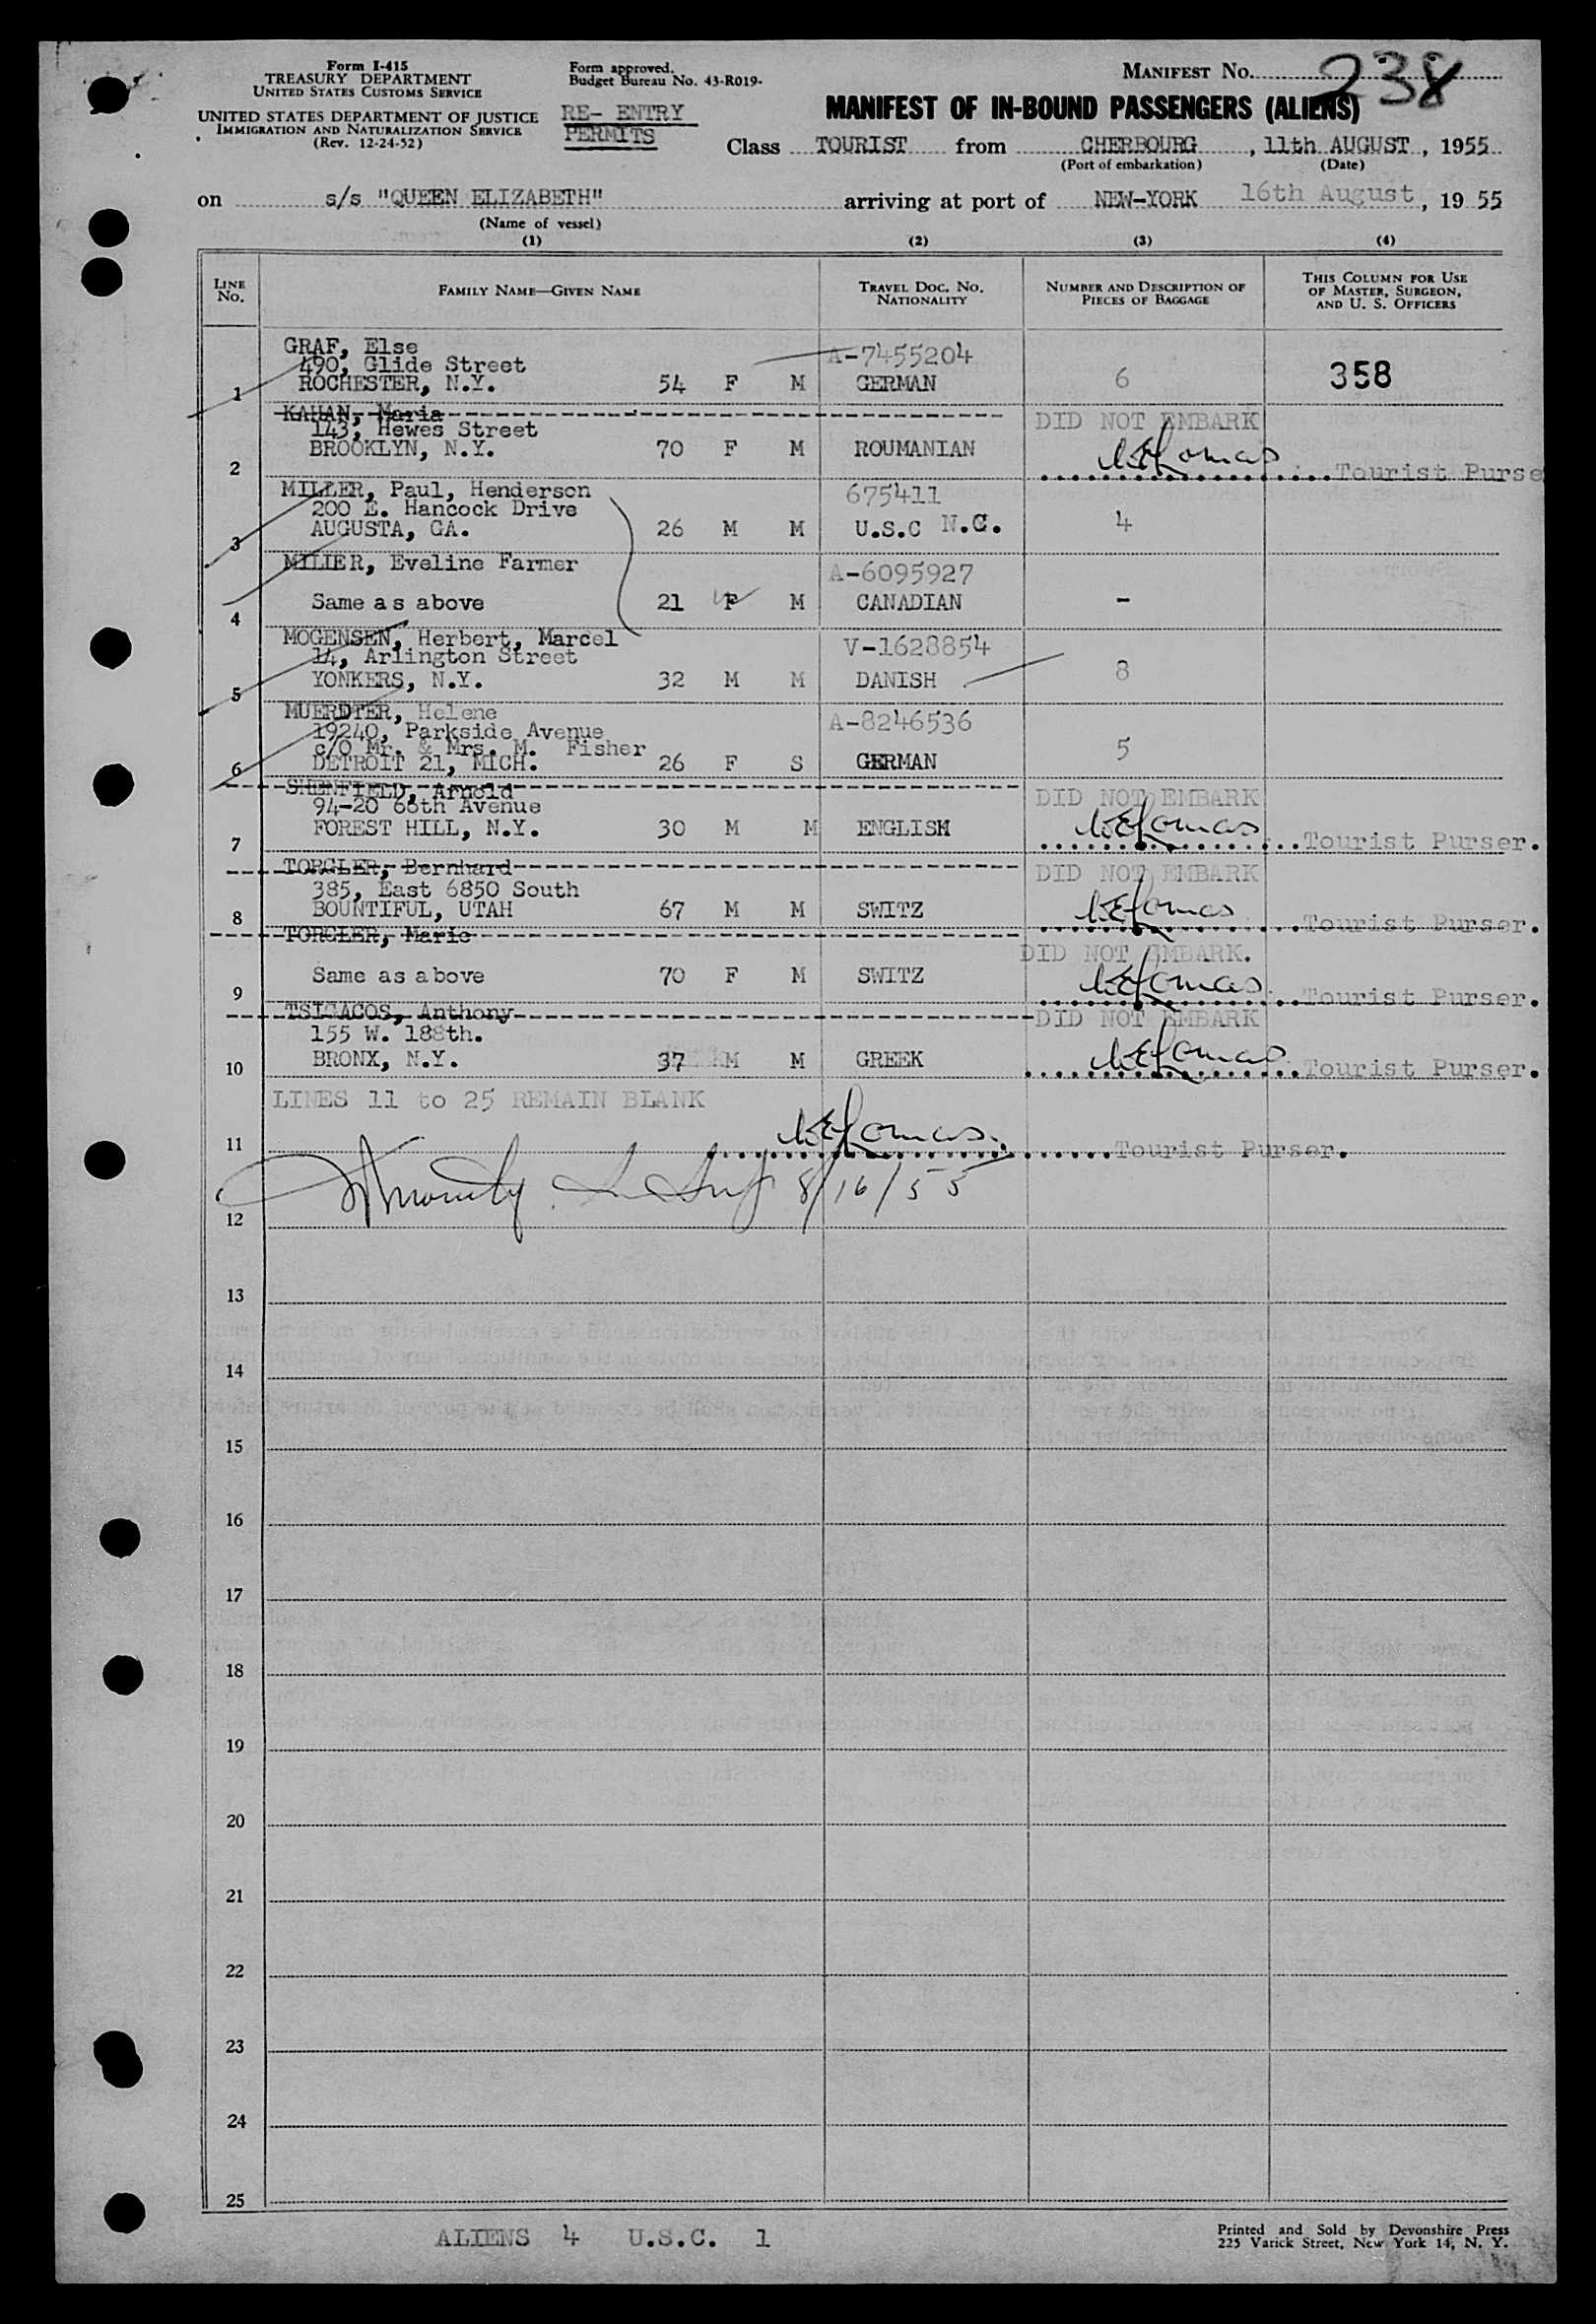 Form I-415
TREASURY DEPARTMENT
UNITED STATES CUSTOMS SERVICE
UNITED STATES DEPARTMENT OF JUSTICE
IMMIGRATION AND NATURALIZATION SERVICE
(Rev. 12-24-52)
Form approved.
Budget Bureau No. 43-R019-
RE- ENTRY
PERMITS
MANIFEST NO. 238
MANIFEST OF IN-BOUND PASSENGERS (ALIENS)
Class TOURIST from CHERBOURG, 11th AUGUST, 1955
(Port of embarkation) (Date)
on s/s "QUEEN ELIZABETH" arriving at port of NEW-YORK 16th August, 19 55
(Name of vessel)
(1) (2) (3) (4)
LINE NO. FAMILY NAME—GIVEN NAME TRAVEL DOC. NO. NATIONALITY NUMBER AND DESCRIPTION OF PIECES OF BAGGAGE THIS COLUMN FOR USE OF MASTER, SURGEON, AND U. S. OFFICERS
GRAF, Else A-7455204
490, Glide Street
1 ROCHESTER, N.Y. 54 F M GERMAN 6 358
KAHAN, Maria DID NOT EMBARK
143, Hewes Street
BROOKLYN, N.Y. 70 F M ROUMANIAN
2 Tourist Purse
MILLER, Paul, Henderson 675411
200 E. Hancock Drive
3 AUGUSTA, GA. 26 M M U.S.C N.C. 4
MILIER, Eveline Farmer A-6095927
4 Same as above 21 F M CANADIAN -
MOGENSEN, Herbert, Marcel V-1628854
14, Arlington Street
5 YONKERS, N.Y. 32 M M DANISH 8
MUERDTER, Helene A-8246536
19240, Parkside Avenue
c/o Mr. & Mrs. M. Fisher
6 DETROIT 21, MICH. 26 F S GERMAN 5
SHENFIELD, Arnold DID NOT EMBARK
94-20 66th Avenue
7 FOREST HILL, N.Y. 30 M M ENGLISH Tourist Purser.
TORGLER, Bernhard DID NOT EMBARK
385, East 6850 South
8 BOUNTIFUL, UTAH 67 M M SWITZ Tourist Purser.
TORGLER, Marie DID NOT EMBARK.
9 Same as above 70 F M SWITZ Tourist Purser.
TSIGACOS, Anthony DID NOT EMBARK
155 W. 188th.
10 BRONX, N.Y. 37 M M GREEK Tourist Purser.
LINES 11 to 25 REMAIN BLANK
11 Tourist Purser.
12 8/16/55
13
14
15
16
17
18
19
20
21
22
23
24
25
ALIENS 4 U.S.C. 1
Printed and Sold by Devonshire Press
225 Varick Street, New York 14, N. Y.